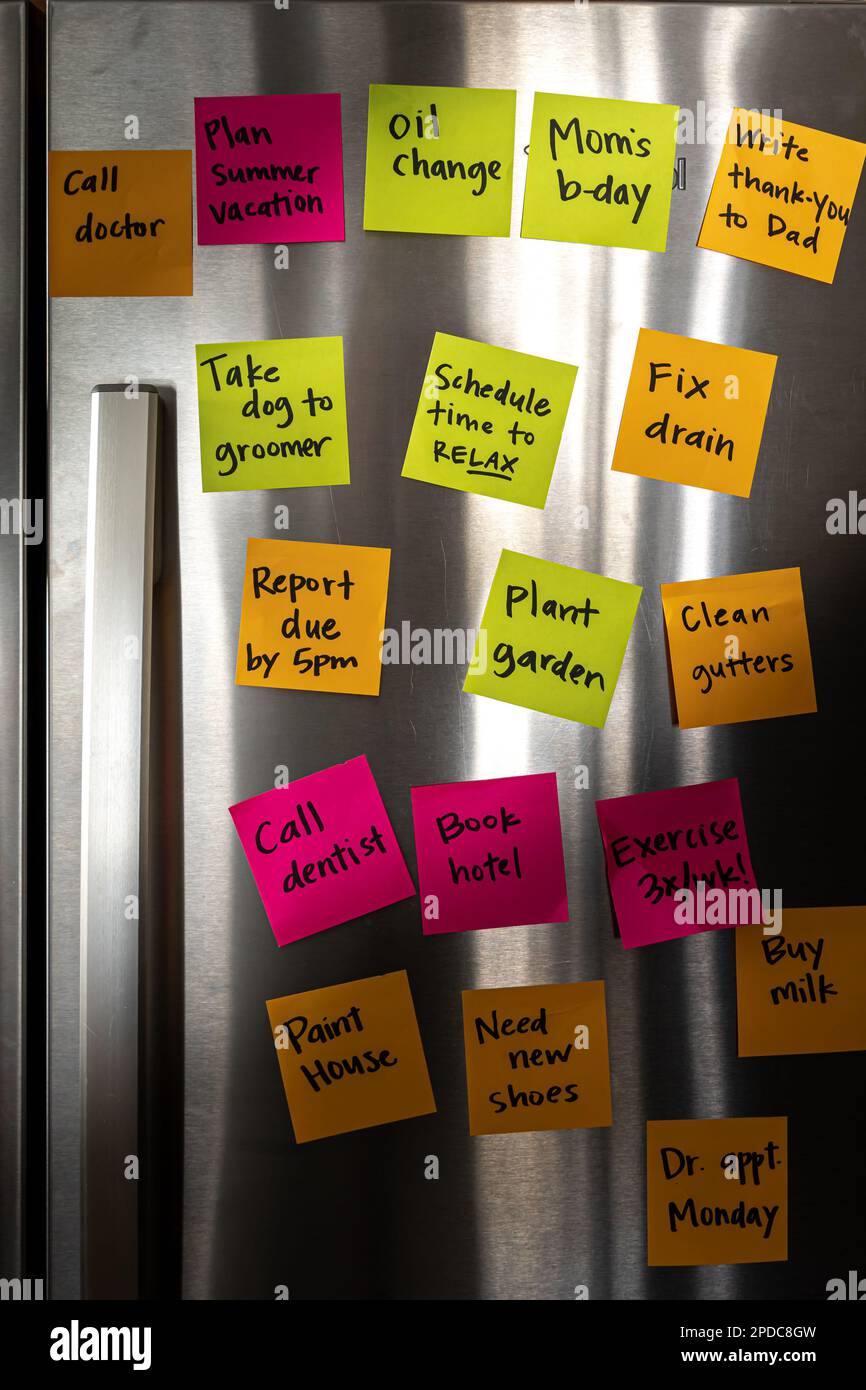 Call
doctor
Plan
summer
vacation
Oil
change
Mom's
b-day
Write
thank-you
to Dad
Take
dog to
groomer
Schedule
time to
RELAX
Fix
drain
Report
due
by 5pm
Plant
garden
Clean
gutters
Call
dentist
Book
hotel
Exercise
3x/wk!
Buy
milk
Paint
House
Need
new
shoes
Dr. appt.
Monday
alamy
alamy
Image ID: 2PDC8GW
www.alamy.com